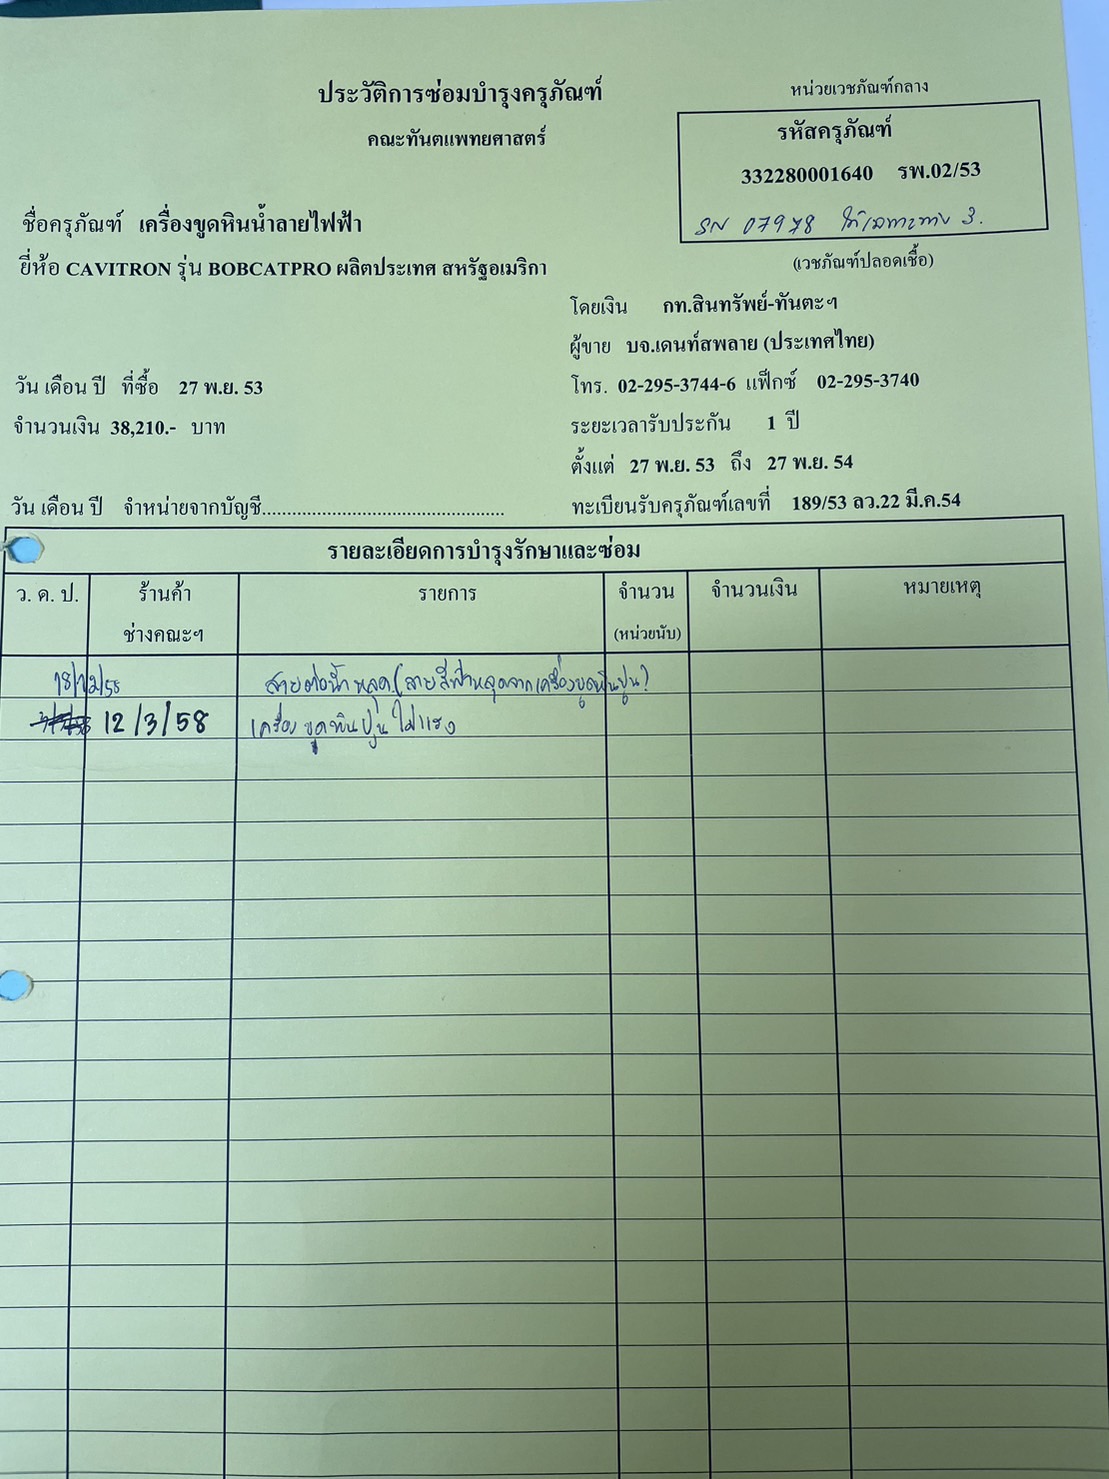 ประวัติการซ่อมบำรุงครุภัณฑ์
คณะทันตแพทยศาสตร์
หน่วยเวชภัณฑ์กลาง
รหัสครุภัณฑ์
332280001640 รพ.02/53
SN 07978
(เวชภัณฑ์ปลอดเชื้อ)
ชื่อครุภัณฑ์ เครื่องขูดหินน้ำลายไฟฟ้า
ยี่ห้อ CAVITRON รุ่น BOBCATPRO ผลิตประเทศ สหรัฐอเมริกา
โดยเงิน กท.สินทรัพย์-ทันตะฯ
ผู้ขาย บจ.เดนท์สพลาย (ประเทศไทย)
วัน เดือน ปี ที่ซื้อ 27 พ.ย. 53
โทร. 02-295-3744-6 แฟ็กซ์ 02-295-3740
จำนวนเงิน 38,210.- บาท
ระยะเวลารับประกัน 1 ปี
ตั้งแต่ 27 พ.ย. 53 ถึง 27 พ.ย. 54
วัน เดือน ปี จำหน่ายจากบัญชี..................................................
ทะเบียนรับครุภัณฑ์เลขที่ 189/53 ลว.22 มี.ค.54
รายละเอียดการบำรุงรักษาและซ่อม
ว. ด. ป. ร้านค้า รายการ จำนวน จำนวนเงิน หมายเหตุ
ช่างคณะฯ (หน่วยนับ)
สายต่อน้ำหลุด (สายสีฟ้าหลุดจากเครื่องขูดหินปูน)
12/3/58 เครื่องขูดหินปูน ไม่แรง